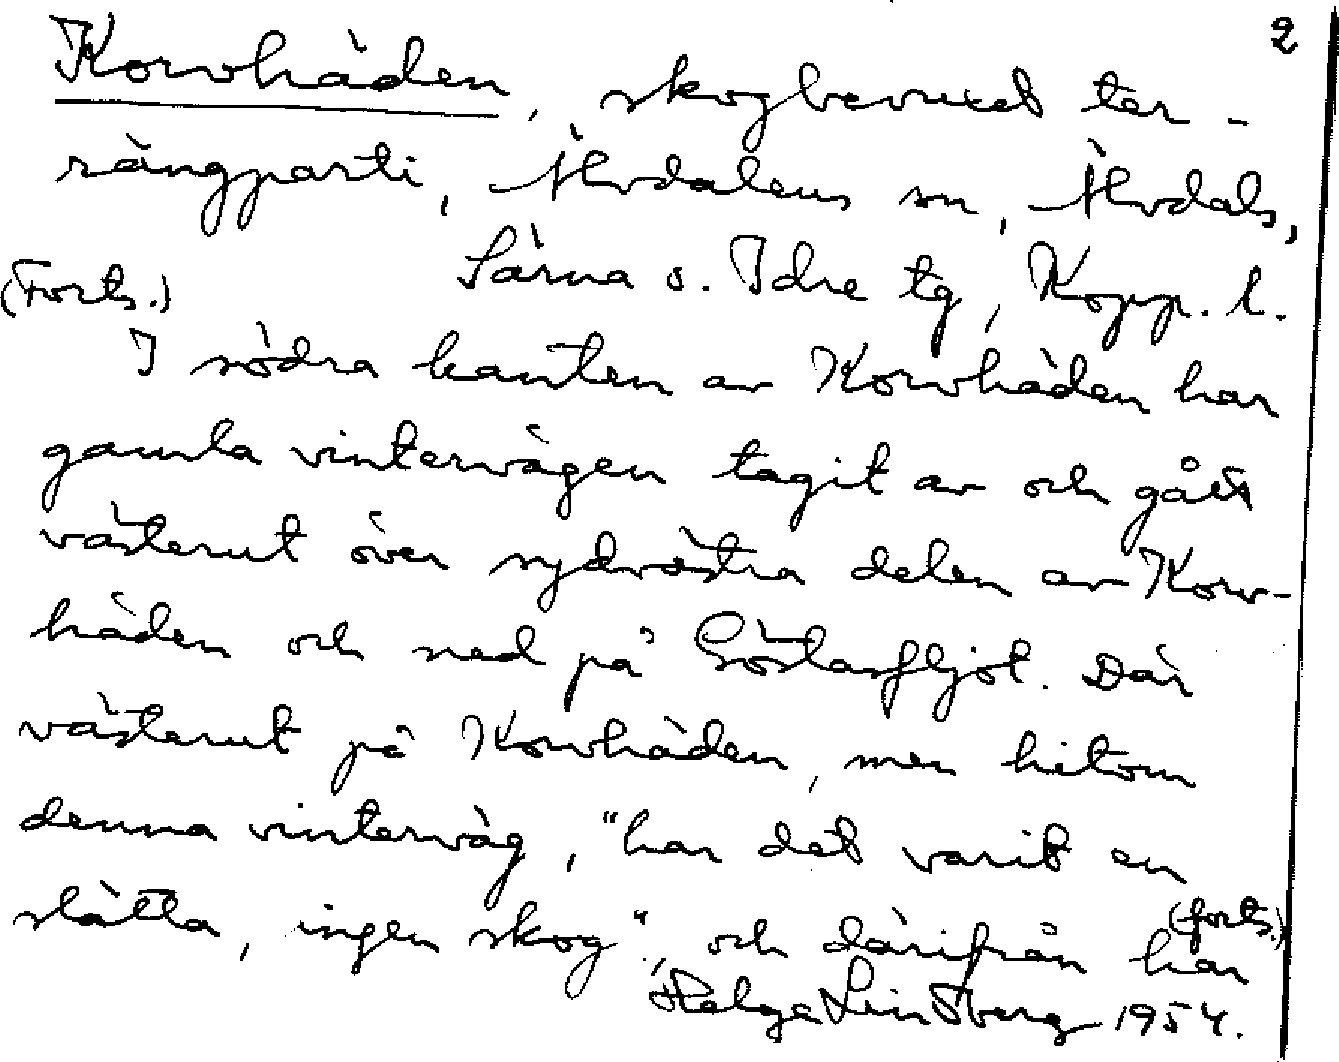 2
Korvhäden, skogbevuxet ter-
rängparti, Älvdalens sn, Älvdals,
(Forts.) Särna o. Idre tg, Kopp. l.
I södra kanten av Korvhäden har
gamla vintervägen tagit av och gått
västerut över sydvästra delen av Korv-
häden och ned på Göstasfljot. Där
västerut på Korvhäden, men hitom
denna vinterväg, "har det varit en
slätta, ingen skog", och därifrån har
(forts.)
Helge Lindberg 1954.